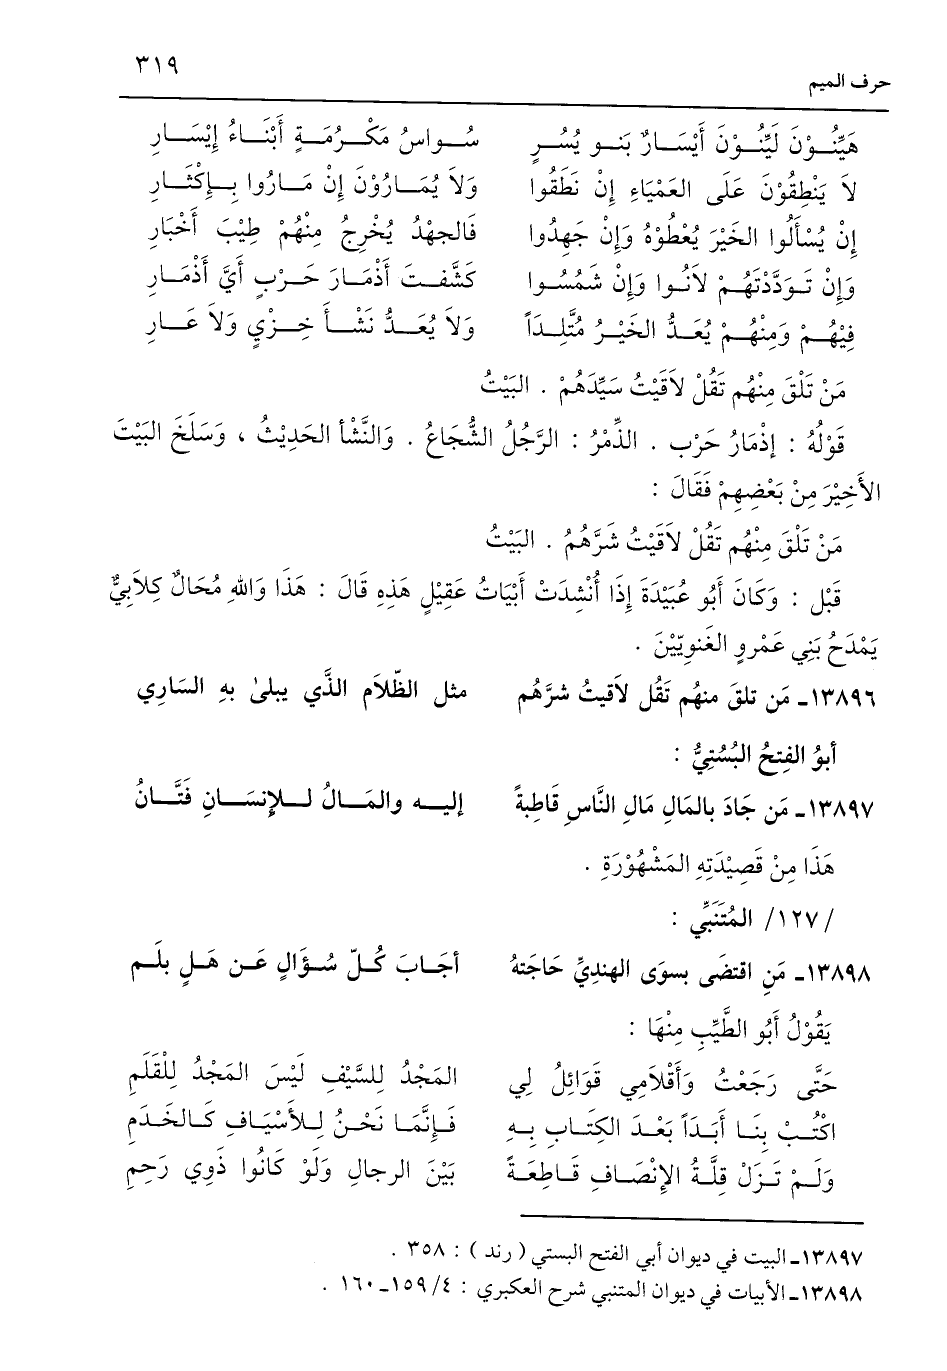 حرف الميم ٣١٩
هَيِّنُوْنَ لَيِّنُوْنَ أَيْسَارٌ بَنو يُسْرٍ سُواسُ مَكْرُمَةٍ أَبْنَاءُ إِيْسَارِ
لاَ يَنْطِقُوْنَ عَلَى العَمْيَاءِ إِنْ نَطَقُوا وَلاَ يُمَارُوْنَ إِنْ مَارُوا بِإِكْثَارِ
إِنْ يُسْأَلُوا الخَيْرَ يُعْطوْهُ وَإِنْ جَهِدُوا فَالجهْدُ يُخْرِجُ مِنْهُمْ طِيْبَ أَخْبَارِ
وَإِنْ تَوَدَّدْتَهُمْ لاَنُوا وَإِنْ شَمُسُوا كَشَّفتَ أَذْمَارَ حَرْبٍ أَيَّ أَذْمَارِ
فِيْهُمْ وَمِنْهُمْ يُعَدُّ الخَيْرُ مُتَّلِدَاً وَلاَ يُعَدُّ نَشْأَ خِزْيٍ وَلاَ عَارِ
مَنْ تَلْقَ مِنْهُم تَقُلْ لاَقَيْتُ سَيِّدَهُمْ . البَيْتُ
قَوْلُهُ : إذْمَارُ حَرْب . الذِّمْرُ : الرَّجُلُ الشُّجَاعُ . وَالنَّشْأ الحَدِيْثُ ، وَسَلَخَ البَيْتَ
الأَخِيْرَ مِنْ بَعْضِهِمْ فَقَالَ :
مَنْ تَلْقَ مِنْهُم تَقُلْ لاَقَيْتُ شَرَّهُمُ . البَيْتُ
قبْل : وَكَانَ أَبُو عُبَيْدَةَ إِذَا أُنْشِدَتْ أَبْيَاتُ عَقِيْلٍ هَذِهِ قَالَ : هَذَا وَاللهِ مُحَالٌ كِلاَبِيٌّ
يَمْدَحُ بَنِي عَمْروٍ الغَنوِيّيْنَ .
١٣٨٩٦ـ مَن تلقَ منهُم تَقُل لاَقيتُ شرَّهُم مثل الظّلاَم الذَّي يبلىٰ بهِ السَارِي
أبوُ الفِتحُ البُسْتِيُّ :
١٣٨٩٧ـ مَن جَادَ بالمَالِ مَال النَّاسِ قَاطِبةً إليه والمَالُ للإنسَانِ فَتَّانُ
هَذَا مِنْ قَصِيْدَتِهِ المَشْهُوْرَةِ .
/١٢٧/ المُتَنَبِّي :
١٣٨٩٨ـ مَنِ اقتضَى بسوَى الهنديِّ حَاجَتهُ أجَابَ كُلّ سُؤَالٍ عَن هَلٍ بلَم
يَقُوْلُ أَبُو الطَّيِّبِ مِنْهَا :
حَتَّى رَجَعْتُ وَأَقْلاَمِي قَوَائِلُ لِي المَجْدُ لِلسَّيْفِ لَيْسَ المَجْدُ لِلْقَلَمِ
اكْتُبْ بِنَا أَبَدَاً بَعْدَ الكِتَابِ بِهِ فَإِنَّمَا نَحْنُ لِلأَسْيَافِ كَالخَدَمِ
وَلَمْ تَزَلْ قِلَّةُ الإِنْصَافِ قَاطِعَةً بَيْنَ الرجالِ وَلَوْ كَانُوا ذَوِي رَحِمِ
١٣٨٩٧ـ البيت في ديوان أبي الفتح البستي ( رند ) : ٣٥٨ .
١٣٨٩٨ـ الأبيات في ديوان المتنبي شرح العكبري : ٤/ ١٥٩ـ ١٦٠ .